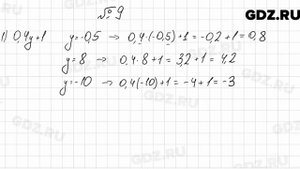 GDZ.RU
№ 9
1) 0,4y+1 y=-0,5 → 0,4·(-0,5)+1=-0,2+1=0,8
y=8 → 0,4·8+1=3,2+1=4,2
y=-10 → 0,4(-10)+1=-4+1=-3
GDZ.RU